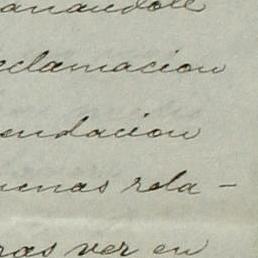 anandole
eclamacion
endacion
uenas rela-
ras ver en